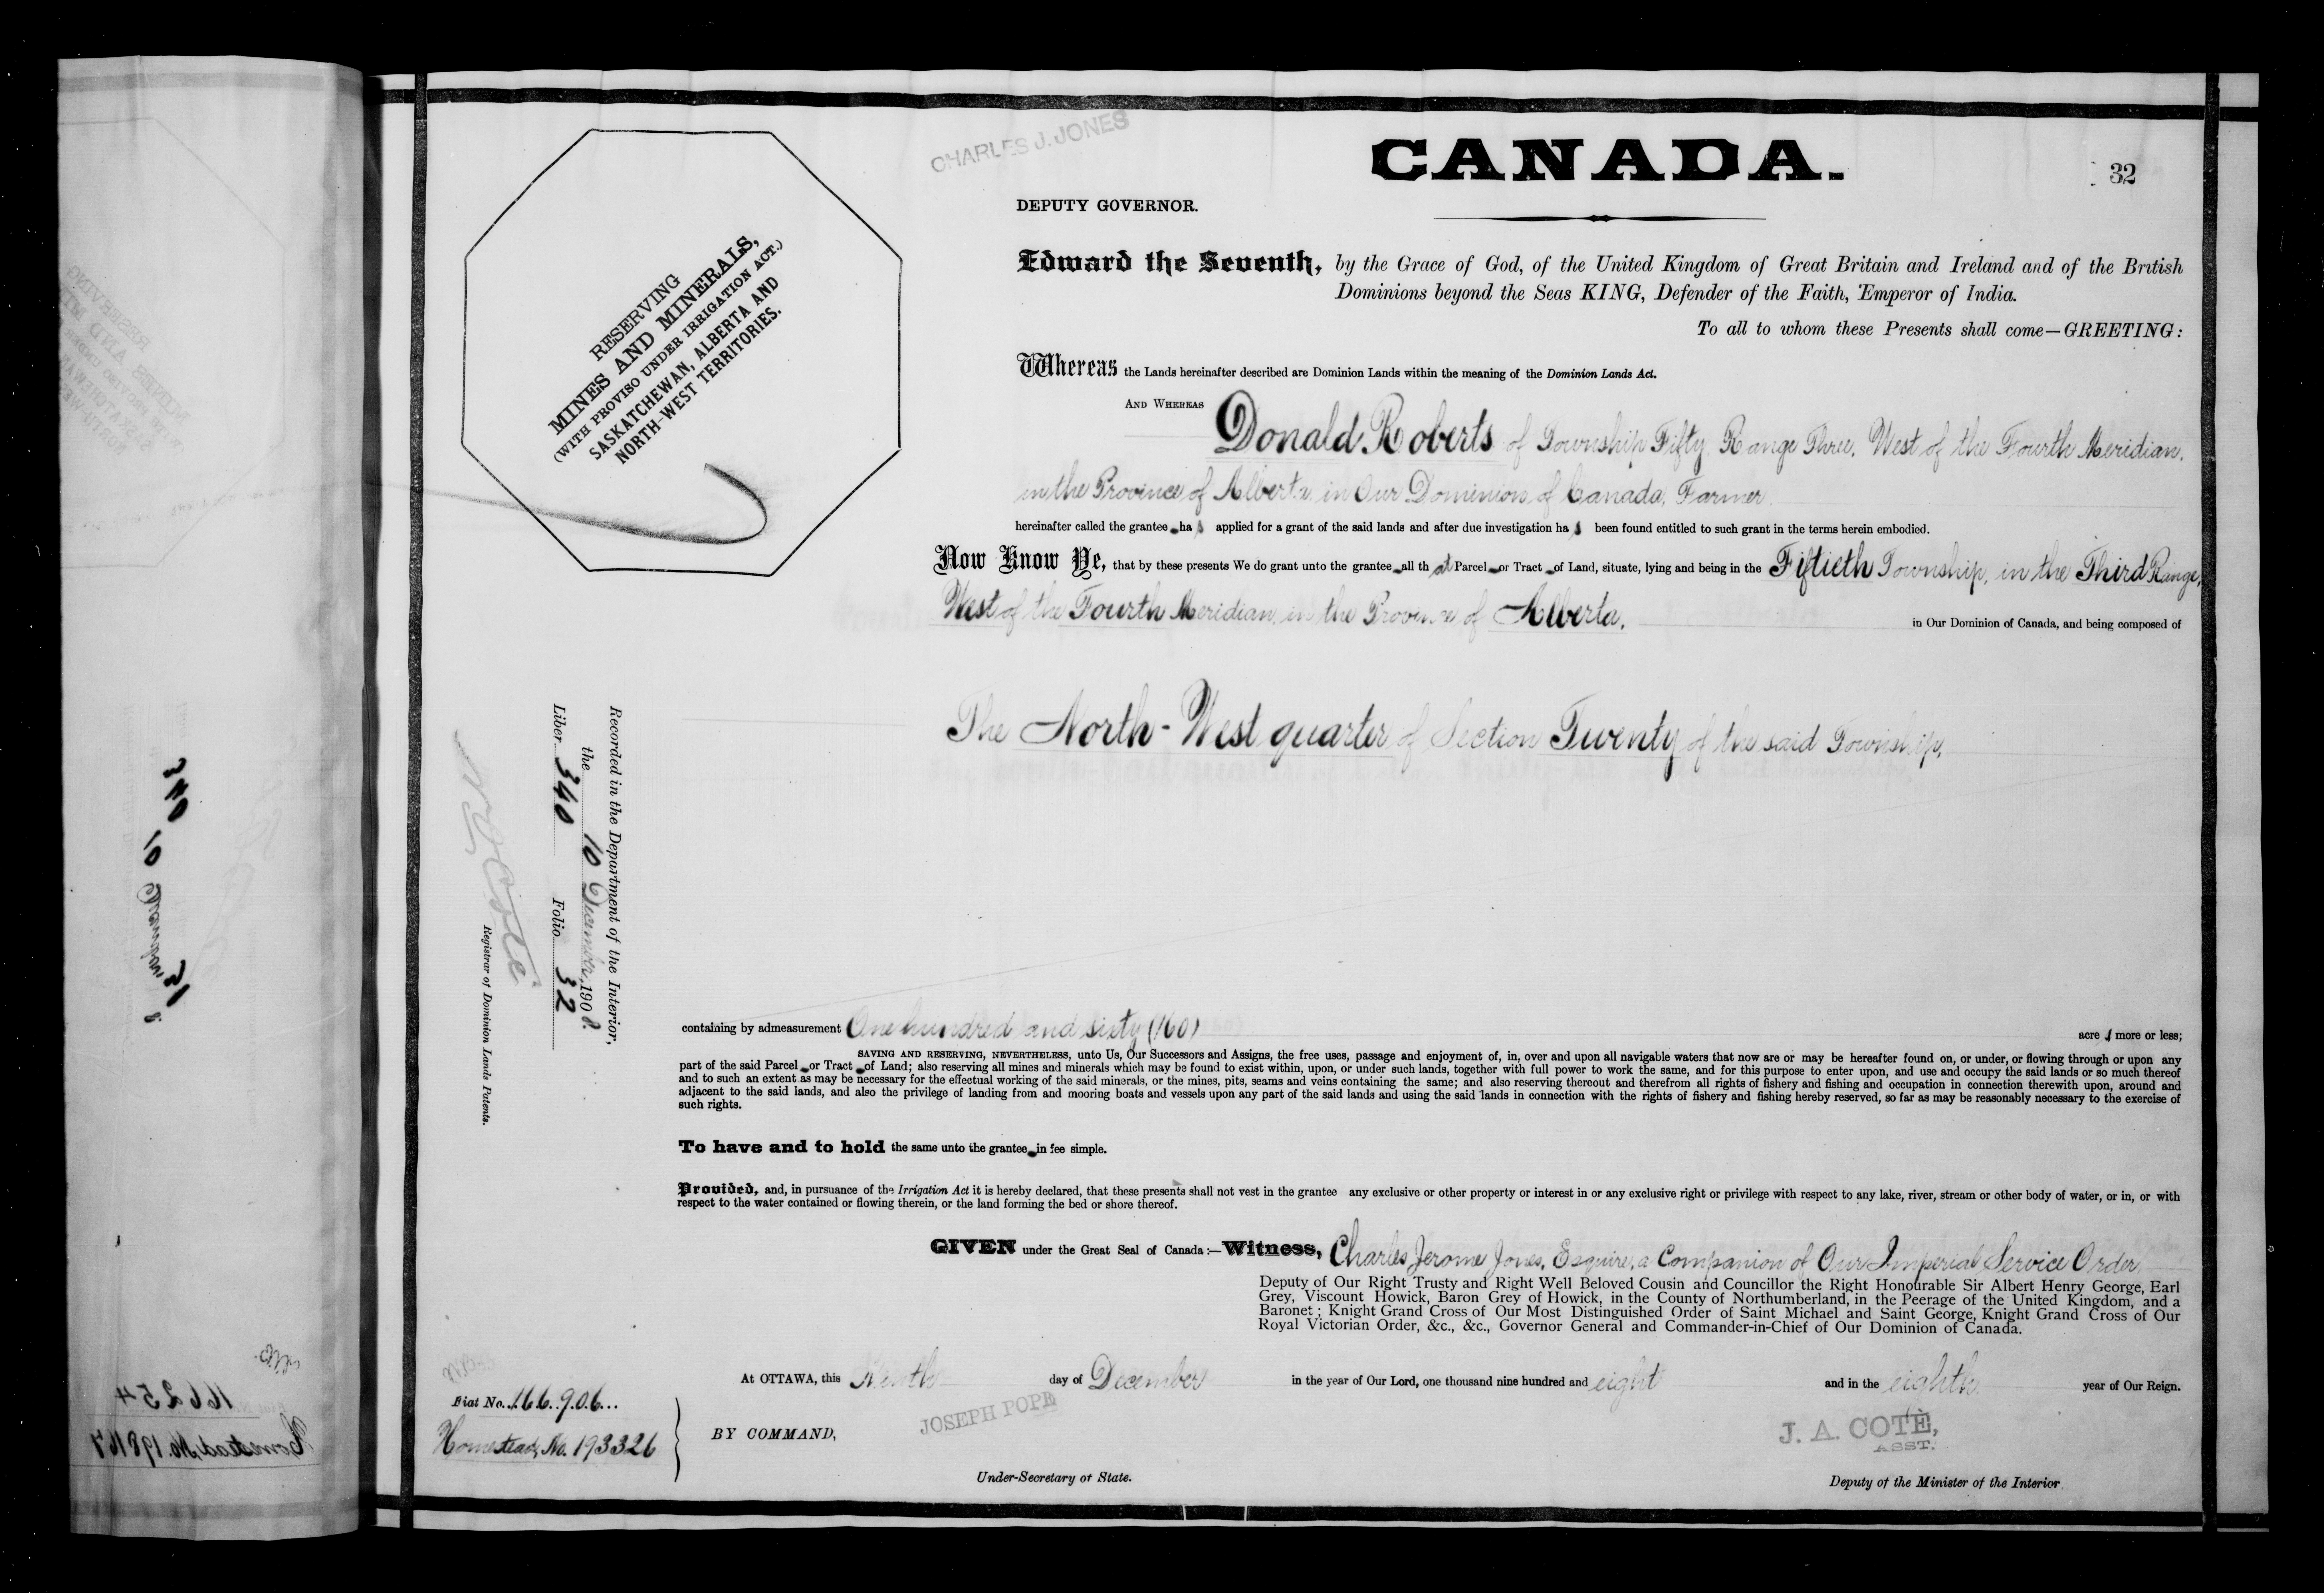 CHARLES J. JONES
CANADA.
32
DEPUTY GOVERNOR.
Edward the Seventh, by the Grace of God, of the United Kingdom of Great Britain and Ireland and of the British
Dominions beyond the Seas KING, Defender of the Faith, Emperor of India.
To all to whom these Presents shall come—GREETING:
Whereas the Lands hereinafter described are Dominion Lands within the meaning of the Dominion Lands Act.
AND WHEREAS Donald Roberts of Township Fifty, Range Three, West of the Fourth Meridian,
in the Province of Alberta, in Our Dominion of Canada, Farmer.
hereinafter called the grantee has applied for a grant of the said lands and after due investigation has been found entitled to such grant in the terms herein embodied.
Now Know Ye, that by these presents We do grant unto the grantee all that Parcel or Tract of Land, situate, lying and being in the Fiftieth Township, in the Third Range,
West of the Fourth Meridian, in the Province of Alberta, in Our Dominion of Canada, and being composed of
The North-West quarter of Section Twenty of the said Township,
containing by admeasurement One hundred and sixty (160) acres more or less;
SAVING AND RESERVING, NEVERTHELESS, unto Us, Our Successors and Assigns, the free uses, passage and enjoyment of, in, over and upon all navigable waters that now are or may be hereafter found on, or under, or flowing through or upon any
part of the said Parcel or Tract of Land; also reserving all mines and minerals which may be found to exist within, upon, or under such lands, together with full power to work the same, and for this purpose to enter upon, and use and occupy the said lands or so much thereof
and to such an extent as may be necessary for the effectual working of the said minerals, or the mines, pits, seams and veins containing the same; and also reserving thereout and therefrom all rights of fishery and fishing and occupation in connection therewith upon, around and
adjacent to the said lands, and also the privilege of landing from and mooring boats and vessels upon any part of the said lands and using the said lands in connection with the rights of fishery and fishing hereby reserved, so far as may be reasonably necessary to the exercise of
such rights.
To have and to hold the same unto the grantee in fee simple.
Provided, and, in pursuance of the Irrigation Act it is hereby declared, that these presents shall not vest in the grantee any exclusive or other property or interest in or any exclusive right or privilege with respect to any lake, river, stream or other body of water, or in, or with
respect to the water contained or flowing therein, or the land forming the bed or shore thereof.
GIVEN under the Great Seal of Canada:—Witness, Charles Jerome Jones, Esquire, a Companion of Our Imperial Service Order
Deputy of Our Right Trusty and Right Well Beloved Cousin and Councillor the Right Honourable Sir Albert Henry George, Earl
Grey, Viscount Howick, Baron Grey of Howick, in the County of Northumberland, in the Peerage of the United Kingdom, and a
Baronet; Knight Grand Cross of Our Most Distinguished Order of Saint Michael and Saint George, Knight Grand Cross of Our
Royal Victorian Order, &c., &c., Governor General and Commander-in-Chief of Our Dominion of Canada.
At OTTAWA, this Ninth day of December in the year of Our Lord, one thousand nine hundred and eight and in the eighth year of Our Reign.
JOSEPH POPE
BY COMMAND,
Under-Secretary of State.
J. A. COTÈ,
ASST.
Deputy of the Minister of the Interior
RESERVING
MINES AND MINERALS,
(WITH PROVISO UNDER IRRIGATION ACT.)
SASKATCHEWAN, ALBERTA AND
NORTH-WEST TERRITORIES.
Recorded in the Department of the Interior,
the 10 December, 1908.
Liber 340 Folio 32
Registrar of Dominion Lands Patents.
Fiat No. 166906
Homestead, No. 193326
340
10
31
166254
Homestead No. 198167